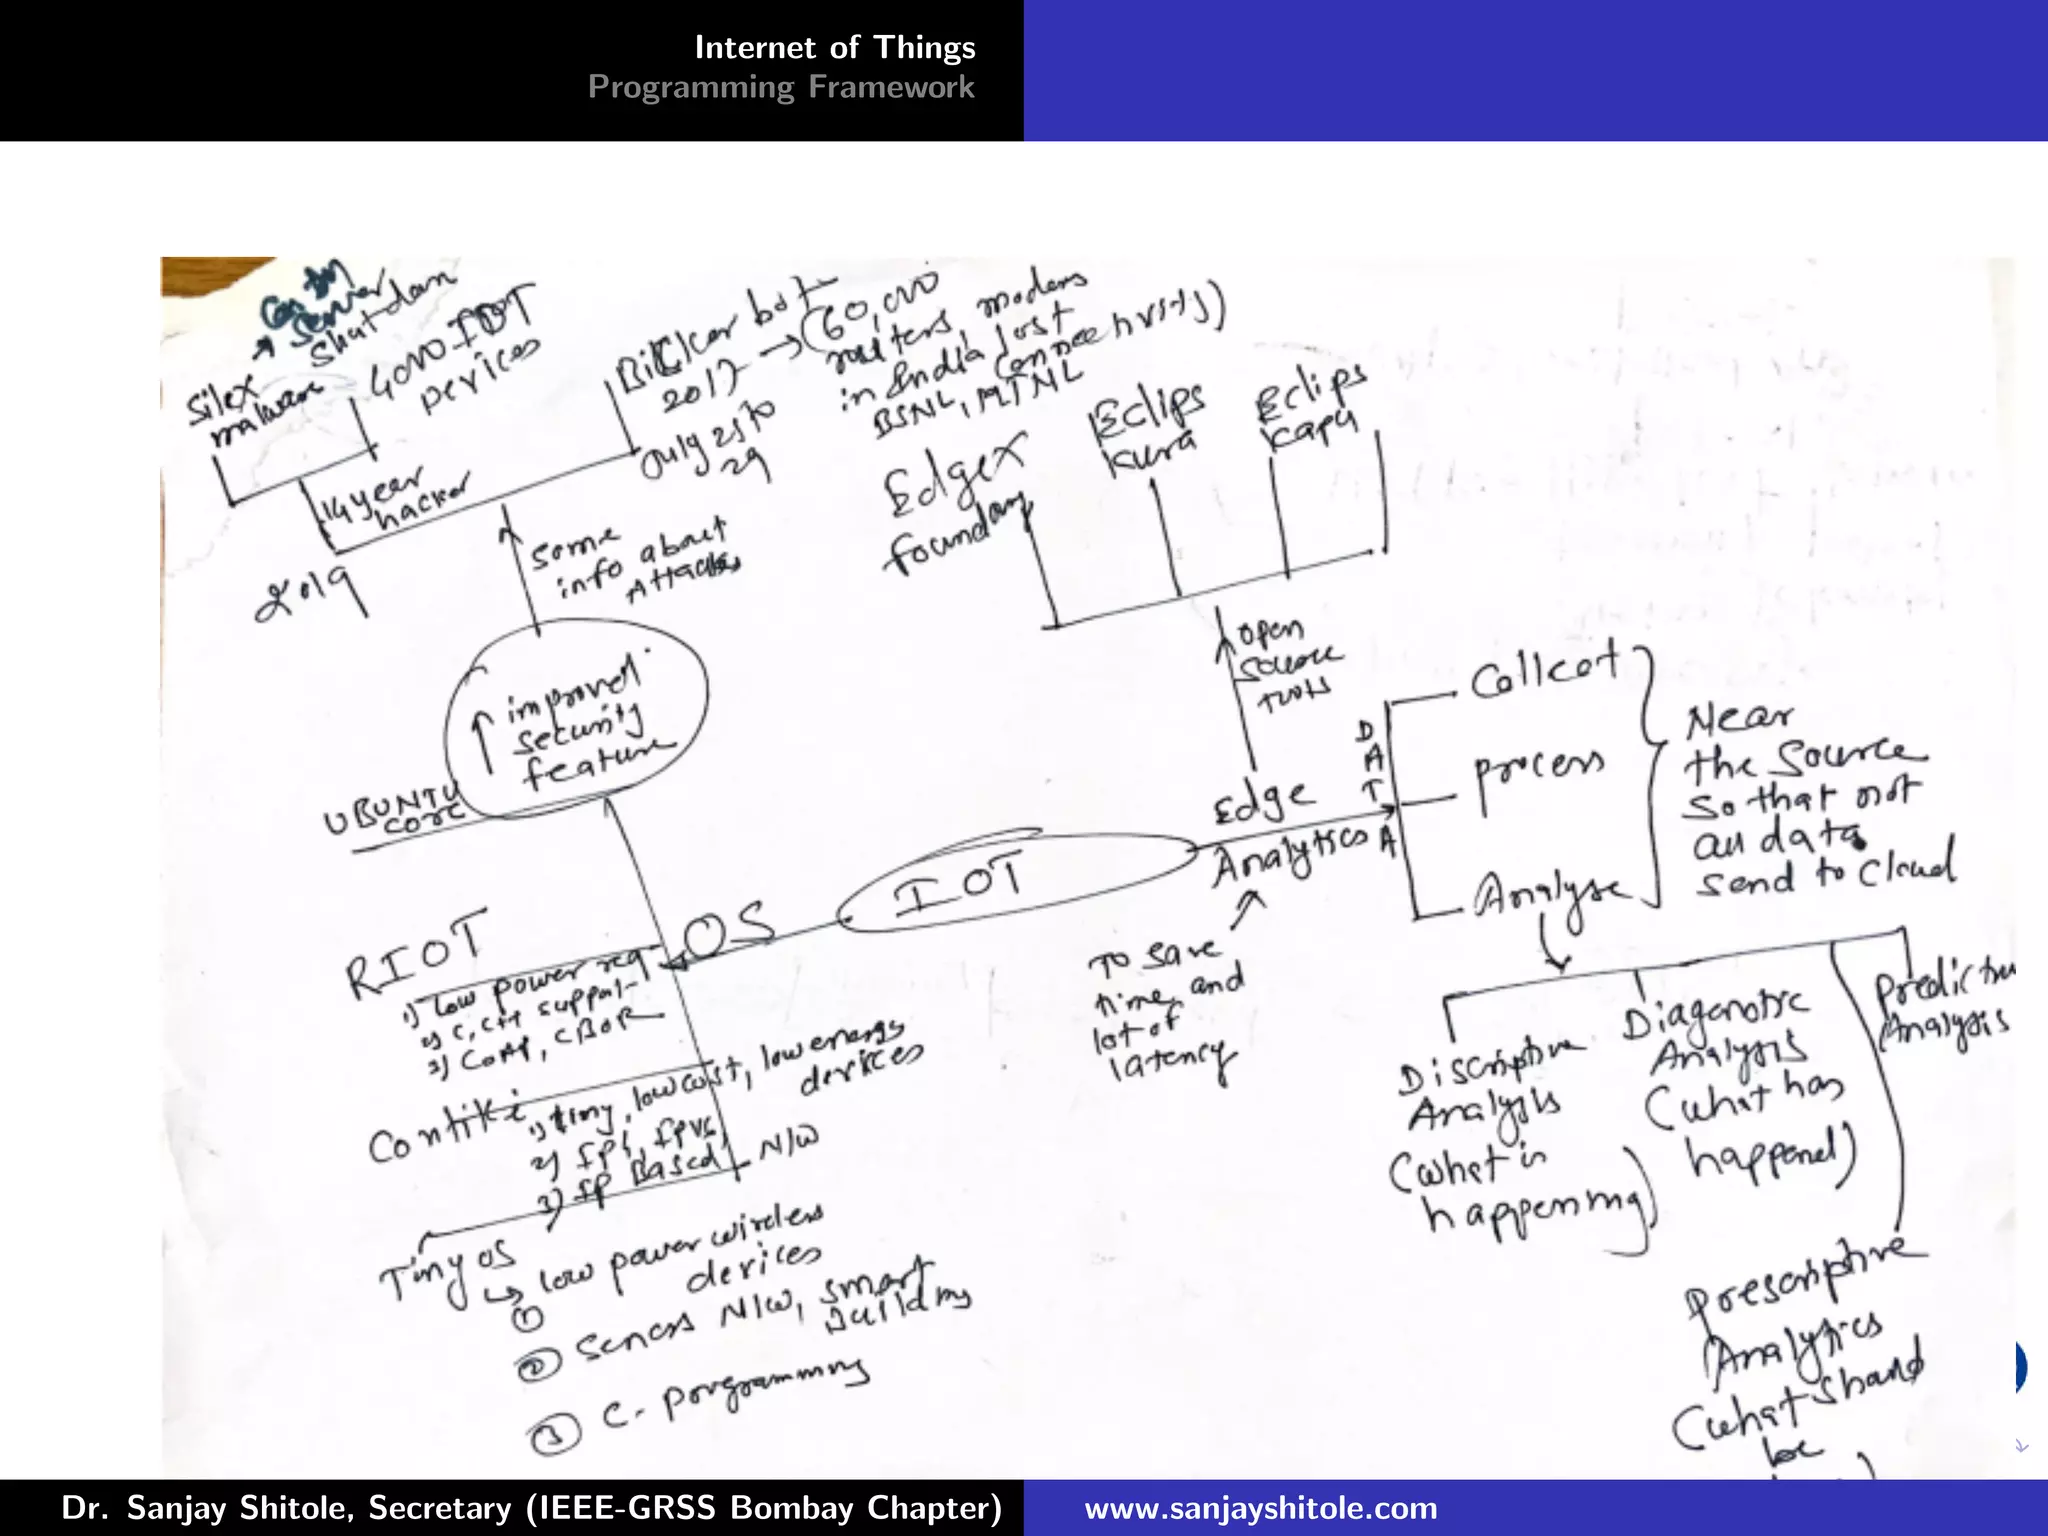 Internet of Things
Programming Framework
Silex
malware
server
Shutdown
4000 IOT
Devices
14 year
hacker
2019
bot
2017 → (60,000
routers, modems
in India lost
connectivity)
BSNL, MTNL
July 25 to
29
some
info about
Attacks
↑ improved
security
feature
UBUNTU
core
EdgeX
foundary
Eclips
Kura
Eclips
Kapu
open
source
tools
IOT
OS
RIOT
1) low power req
2) C, C++ support
3) CoAP, CBOR
Contiki
1) tiny, low cost, low energy
devices
2)
3) IP Based N/W
Tiny OS
① low power wireless
devices
② N/W, smart
③ C-
Edge
Analytics
To save
time and
lot of
latency
DATA
process
Analyse
Near
the source
so that not
all data
send to cloud
Discriptive
Analysis
(what is
happening)
Analysis
(what has
happened)
Analysis
Prescriptive
Analytics
(what
be
Dr. Sanjay Shitole, Secretary (IEEE-GRSS Bombay Chapter)
www.sanjayshitole.com